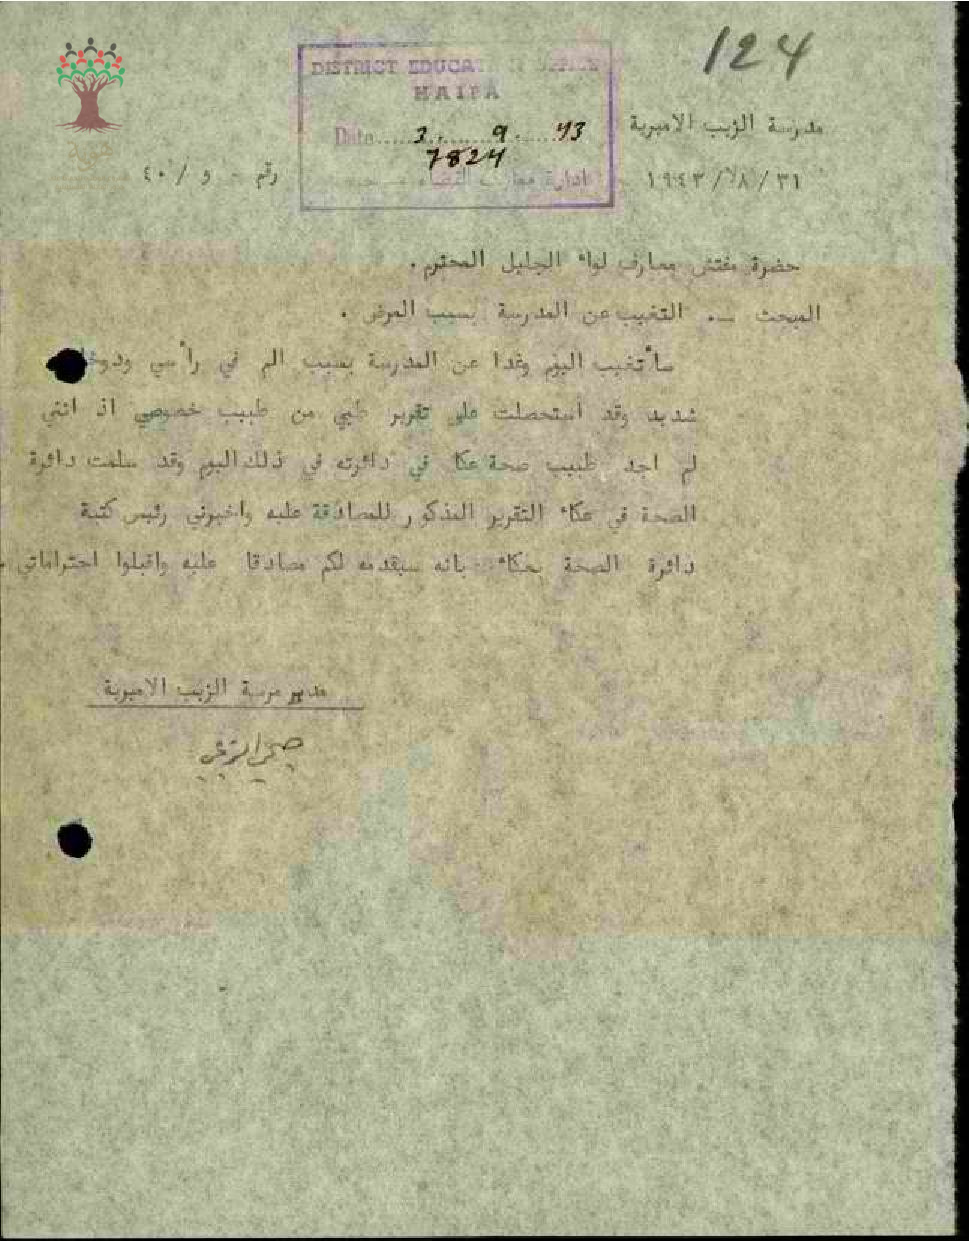 124
DISTRICT EDUCATION OFFICE
HAIFA
Date....3.......9.....43
7824
ادارة معارف القضاء
مدرسة الزيب الاميرية
٣١ / ٨ / ١٩٤٣
رقم - و / ٤٠
حضرة مفتش معارف لواء الجليل المحترم .
المبحث -. التغيب عن المدرسة بسبب المرض .
سأتغيب اليوم وغدا عن المدرسة بسبب الم في رأسي
شديد وقد استحصلت على تقرير طبي من طبيب خصوصي اذ انني
لم اجد طبيب صحة عكا في دائرته في ذلك اليوم وقد سلمت دائرة
الصحة في عكاء التقرير المذكور للمصادقة عليه واخبرني رئيس كتبة
دائرة الصحة بعكاء بانه سيقدمه لكم مصادقا عليه واقبلوا احتراماتي
مدير مرسة الزيب الاميرية